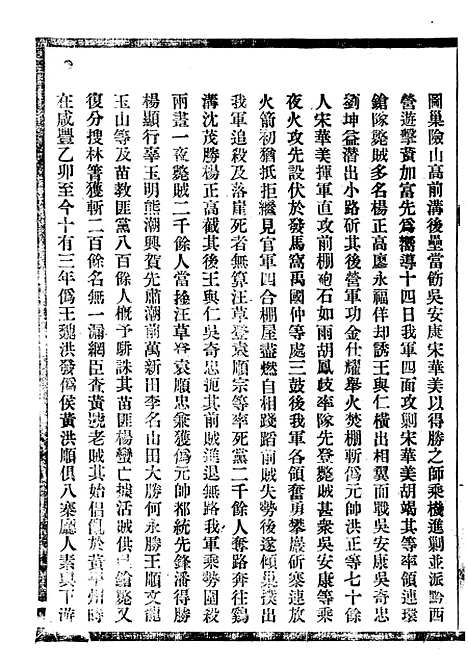 圖巢險山高前溝後壘當飭吳安康宋華美以得勝之師乘機進剿並派黔西
營遊擊黃加富先為嚮導十四日我軍四面攻剿宋華美胡竭其等率領連環
鎗隊斃賊多名楊正高廖永福佯却誘王與仁橫出相翼而戰吳安康吳奇忠
劉坤益潛出小路斫其後營軍功金仕耀舉火焚棚斬偽元帥洪正等七十餘
人宋華美揮軍直攻前棚砲石如雨胡鳳岐率隊先登斃賊甚衆吳安康等乘
夜火攻先設伏於發馬窩禹國仲等處三鼓後我軍各領奮勇攀巖斫寨齊施
火箭初猶抵拒繼見官軍四合棚屋盡燃自相踐蹈前賊失勢後遁傾巢撲出
我軍追殺及落崖死者無算汪草登袁順宗等率死黨二千餘人奪路奔往鷄
溝沈茂勝楊正高截其後王與仁吳奇忠扼其前賊進退無路我軍乘勢圍殺
兩晝一夜斃賊二千餘人當擒汪草登袁順忠並獲偽元帥都統先鋒潘得勝
楊顯行辜玉明熊潮興賀先肅潮前萬新田李名山田大勝何永勝王順文龍
玉山等及苗教匪黨八百餘人概予駢誅其苗匪楊蠻亡據活賊供已鎗斃又
復分搜林箐獲斬二百餘名無一漏網臣查黃號老賊其始倡亂於黃平州時
在咸豐乙卯至今十有三年偽王魏洪發偽侯黃洪順俱八寨廳人素與下游